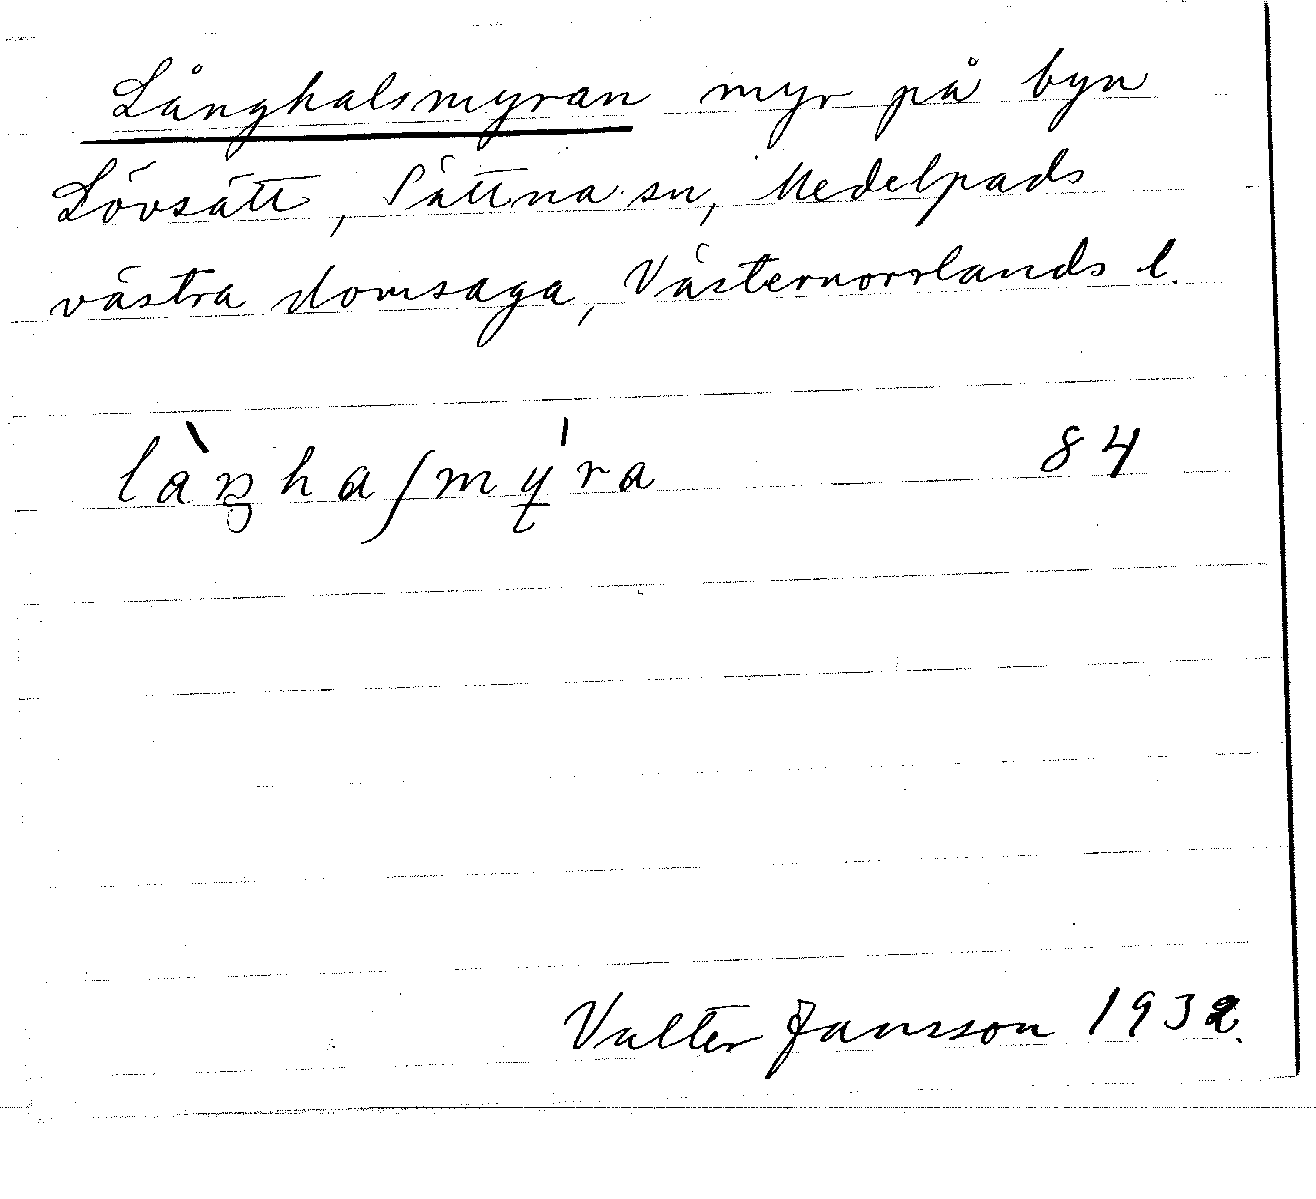 Långhalsmyran myr på byn
Lövsätt, Sättna sn, Medelpads
västra domsaga, Västernorrlands l.
làŋhaʃmý̵ra 84
Valter Jansson 1932.